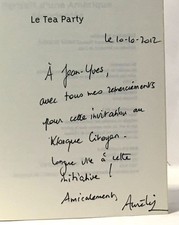 Le Tea Party
le 10-10-2012
À Jean-Yves,
avec tous mes remerciements
pour cette invitation au
Kiosque Citoyen.
Longue vie à cette
initiative !
Amicalement,